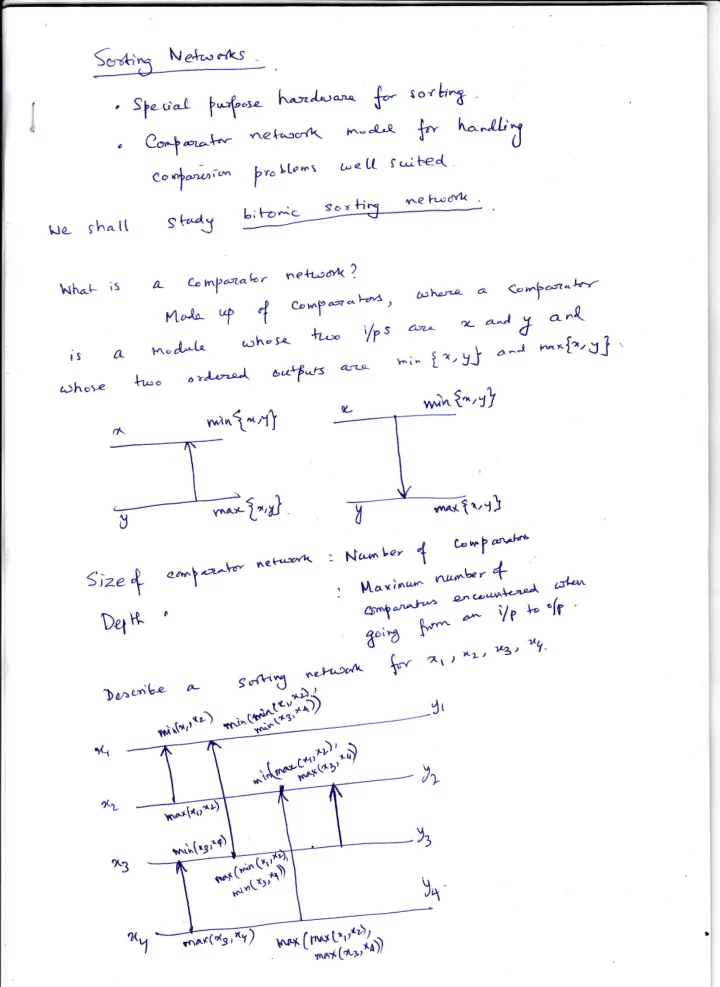 Sorting Networks.
• Special purpose hardware for sorting.
• Comparator network model for handling
comparision problems well suited.
We shall study bitonic sorting network.
What is a comparator network?
Made up of comparators, where a comparator
is a module whose two i/ps are x and y and
whose two ordered outputs are min {x,y} and max{x,y}.
x min{x,y} x min{x,y}
y max{x,y}. y max{x,y}
Size of comparator network : Number of comparators
Depth " : Maximum number of
comparators encountered when
going from an i/p to o/p.
Describe a sorting network for x1, x2, x3, x4.
x1 min(x1,x2) min(min(x1,x2), y1
min(x3,x4))
min(max(x1,x2),
max(x3,x4))
x2 y2
max(x1,x2)
min(x3,x4)
x3 y3
max(min(x1,x2),
min(x3,x4))
y4.
x4 max(x3,x4) max(max(x1,x2),
max(x3,x4))